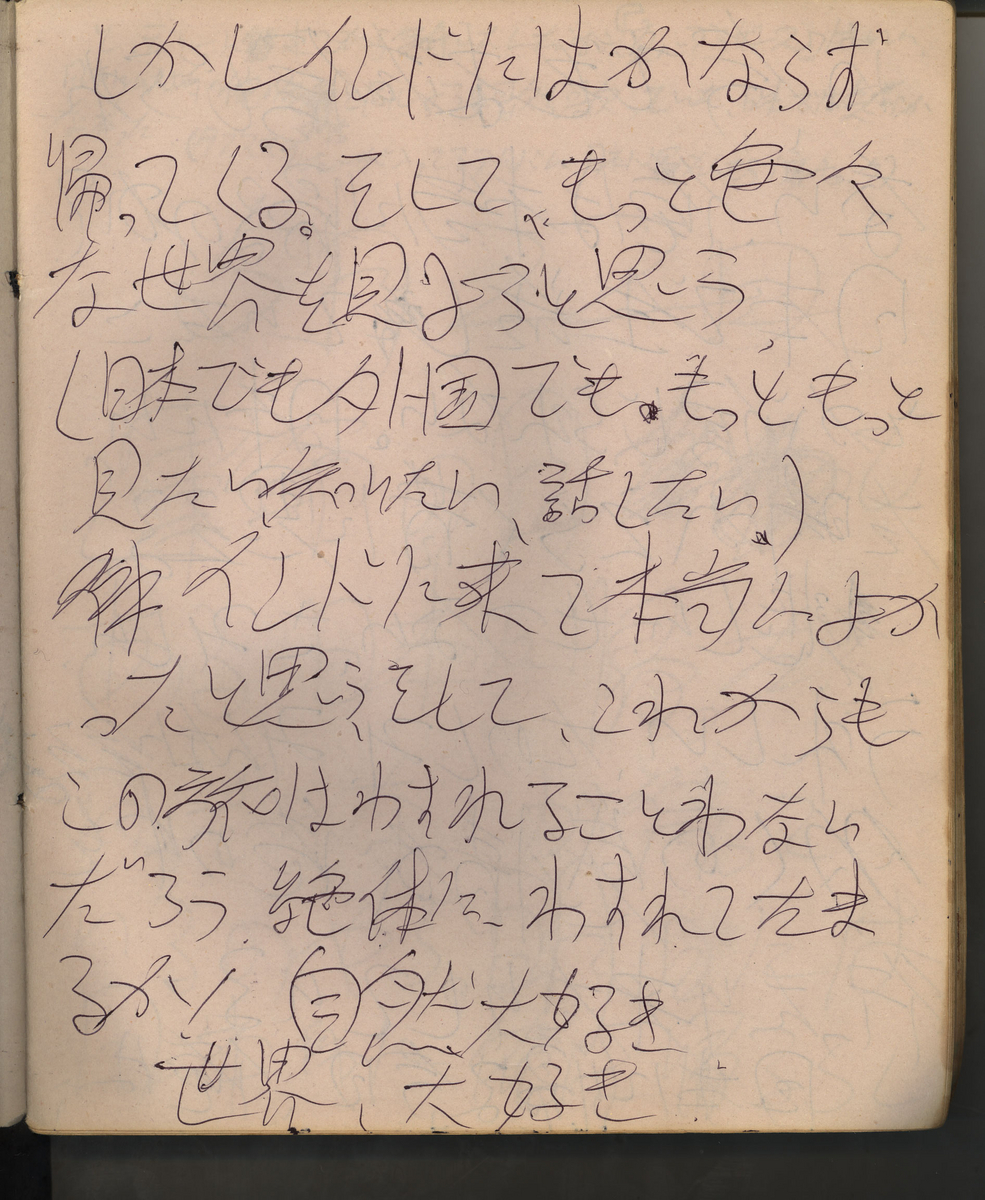 しかしインドにはかならず
帰ってくる。そして、もっと色々
な世界を見ようと思う
(日本でも外国でも。もっともっと
見たい知りたい、話したい。)
インドに来て本当によか
ったと思う、そして、これからも
この旅はわすれることわない
だろう 絶体に、わすれてたま
るか! 自然大好き
世界、大好き.